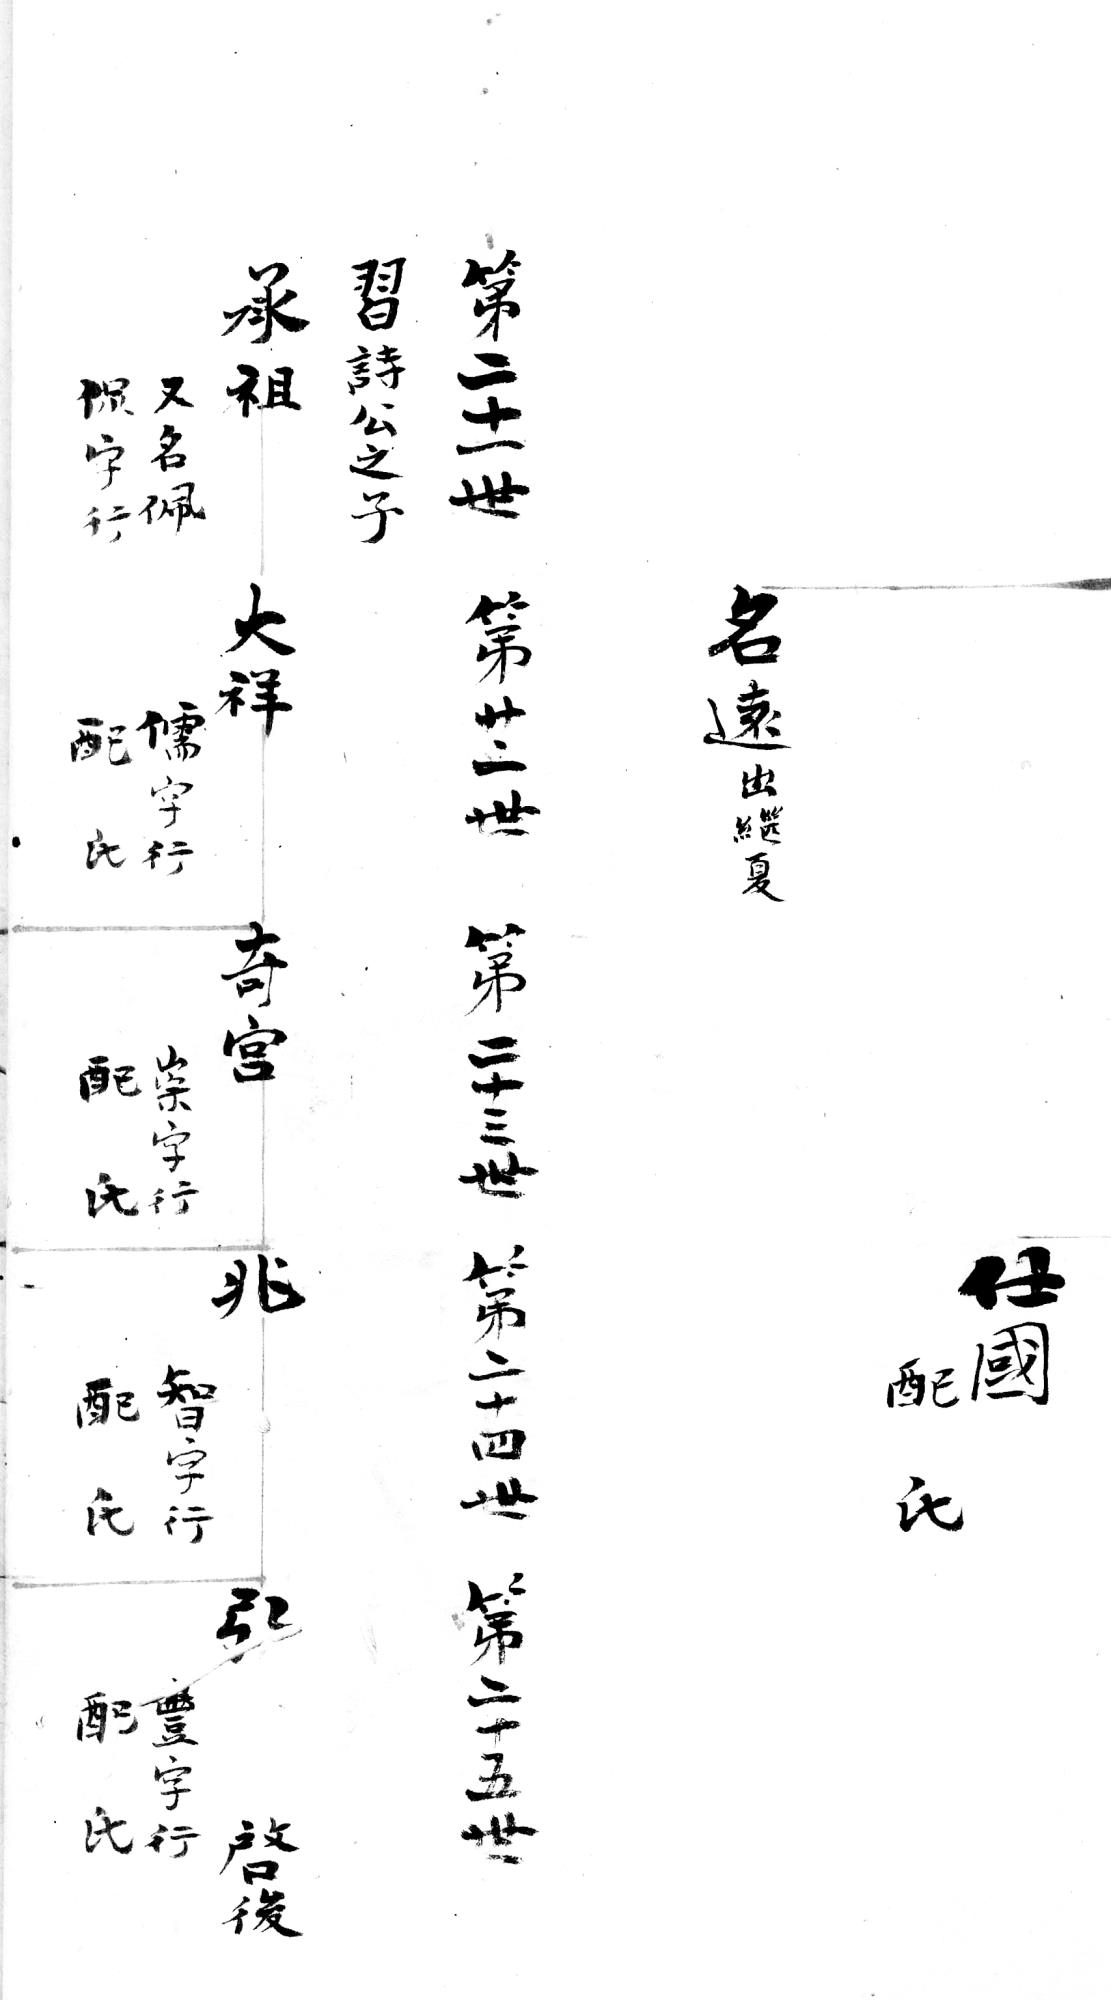 仕國
配 氏
名遠出繼夏
第二十一世
習詩公之子
承祖
又名佩
侭字行
第廿二世
大祥
儒字行
配 氏
第二十三世
奇宮
崇字行
配 氏
第二十四世
兆
智字行
配 氏
第二十五世
弘
豐字行
配 氏
啓後